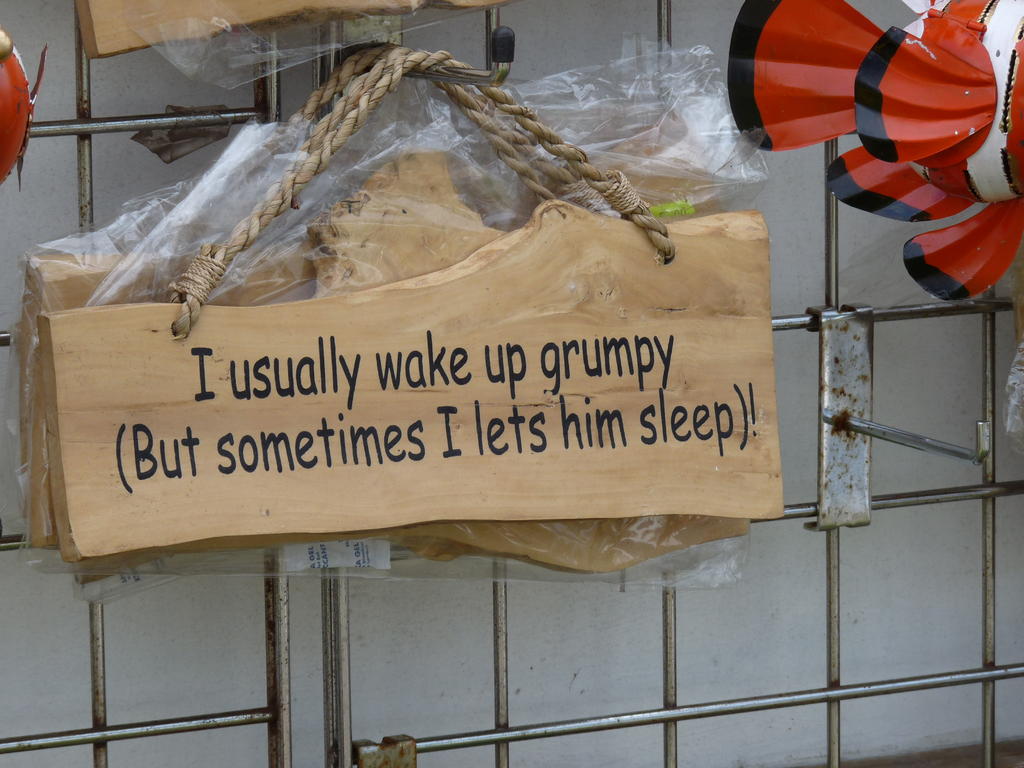 I usually wake up grumpy
(But sometimes I lets him sleep)!